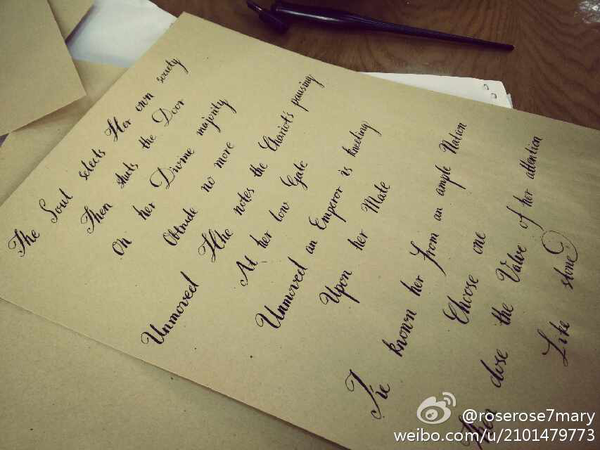 The Soul selects Her own society
Then shuts the Door
On her Divine majority
Obtrude no more
Unmoved Hhe notes the Chariots pausing
At her low Gate
Unmoved an Emperor is kneeling
Upon her Mate
I've known her from an ample Nation
Choose one
close the Valve of her attention
Like stone
@roserose7mary
weibo.com/u/2101479773